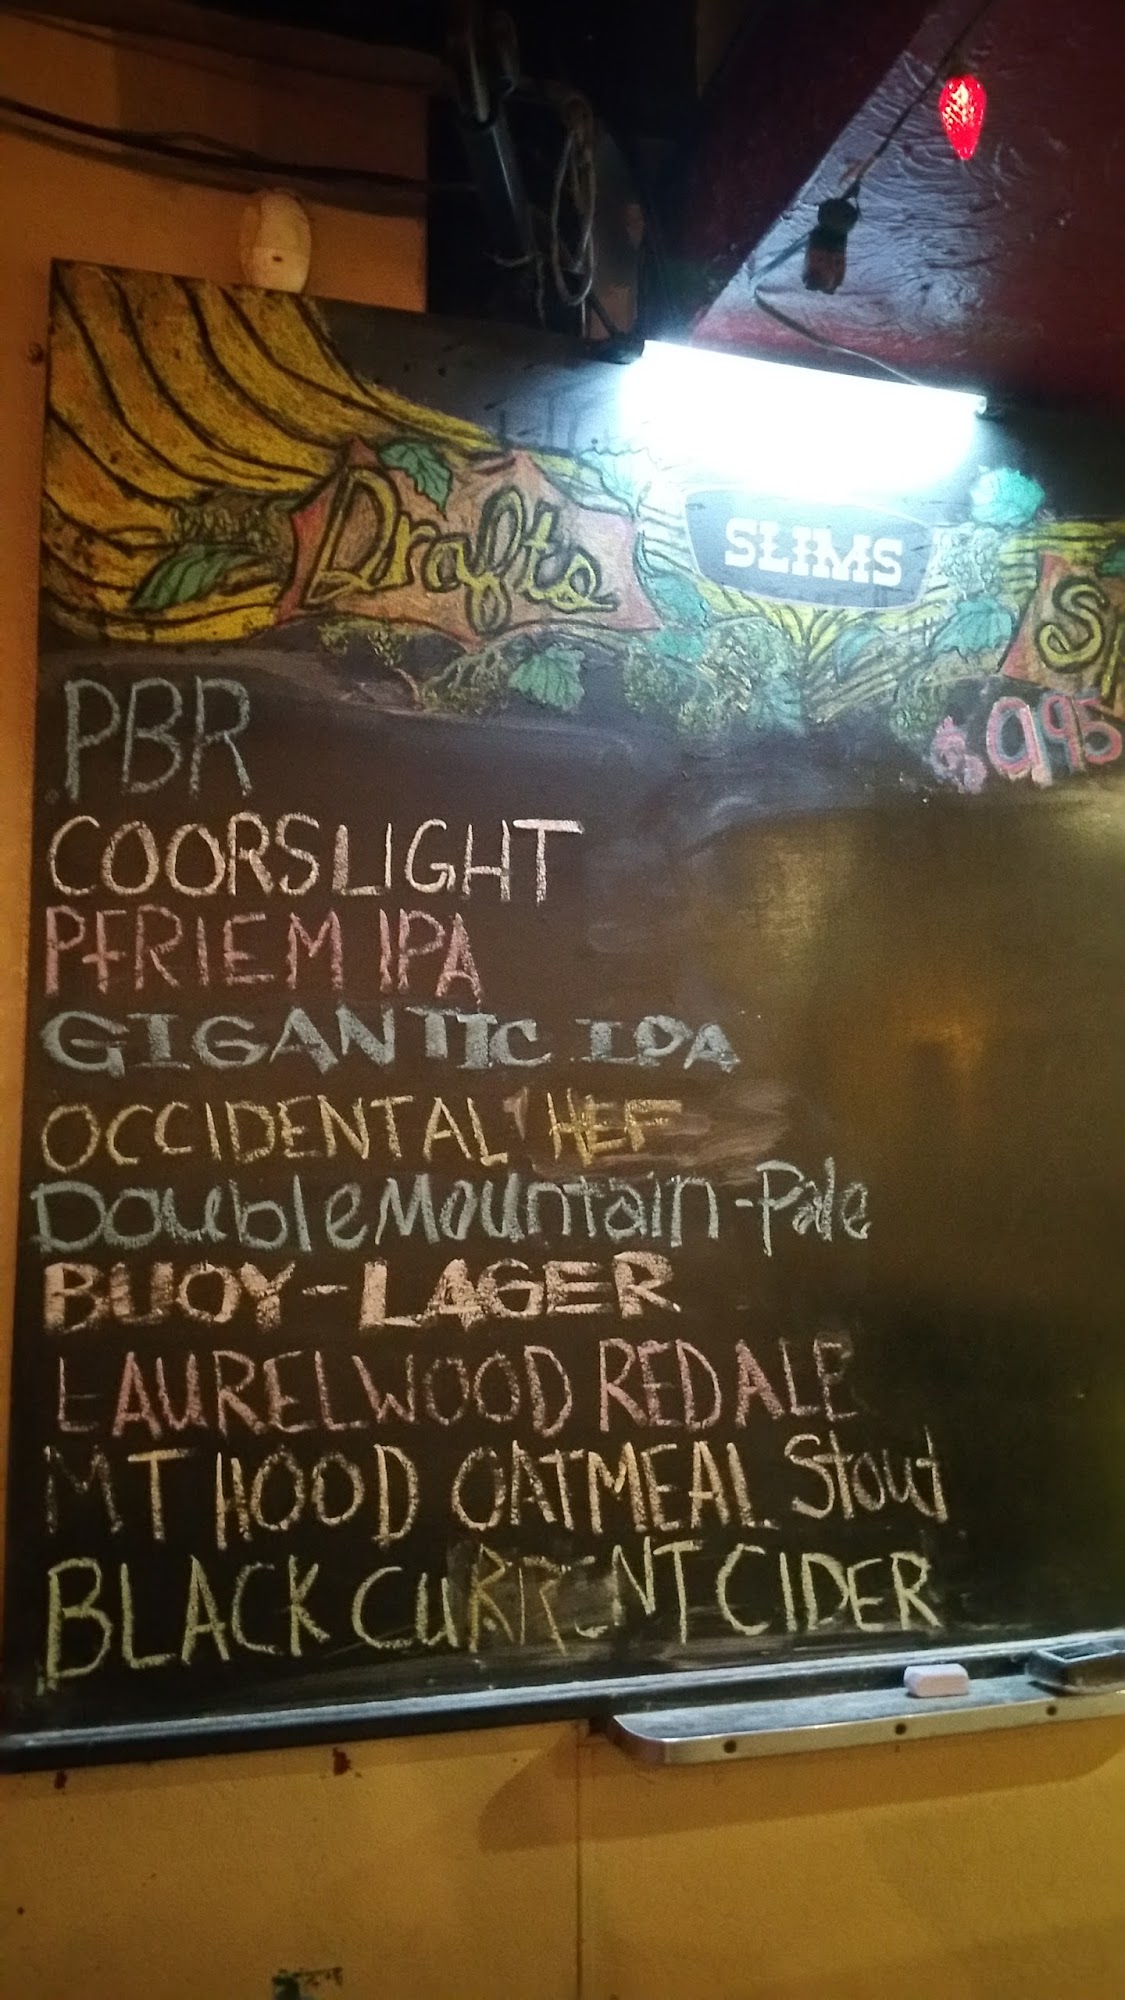 Drafts
SLIMS
Sp
$9.95
PBR
COORSLIGHT
PFRIEM IPA
GIGANTIC IPA
OCCIDENTAL HEF
DoubleMountain-Pale
BUOY-LAGER
LAURELWOOD RED ALE
MT HOOD OATMEAL Stout
BLACK CURRENT CIDER